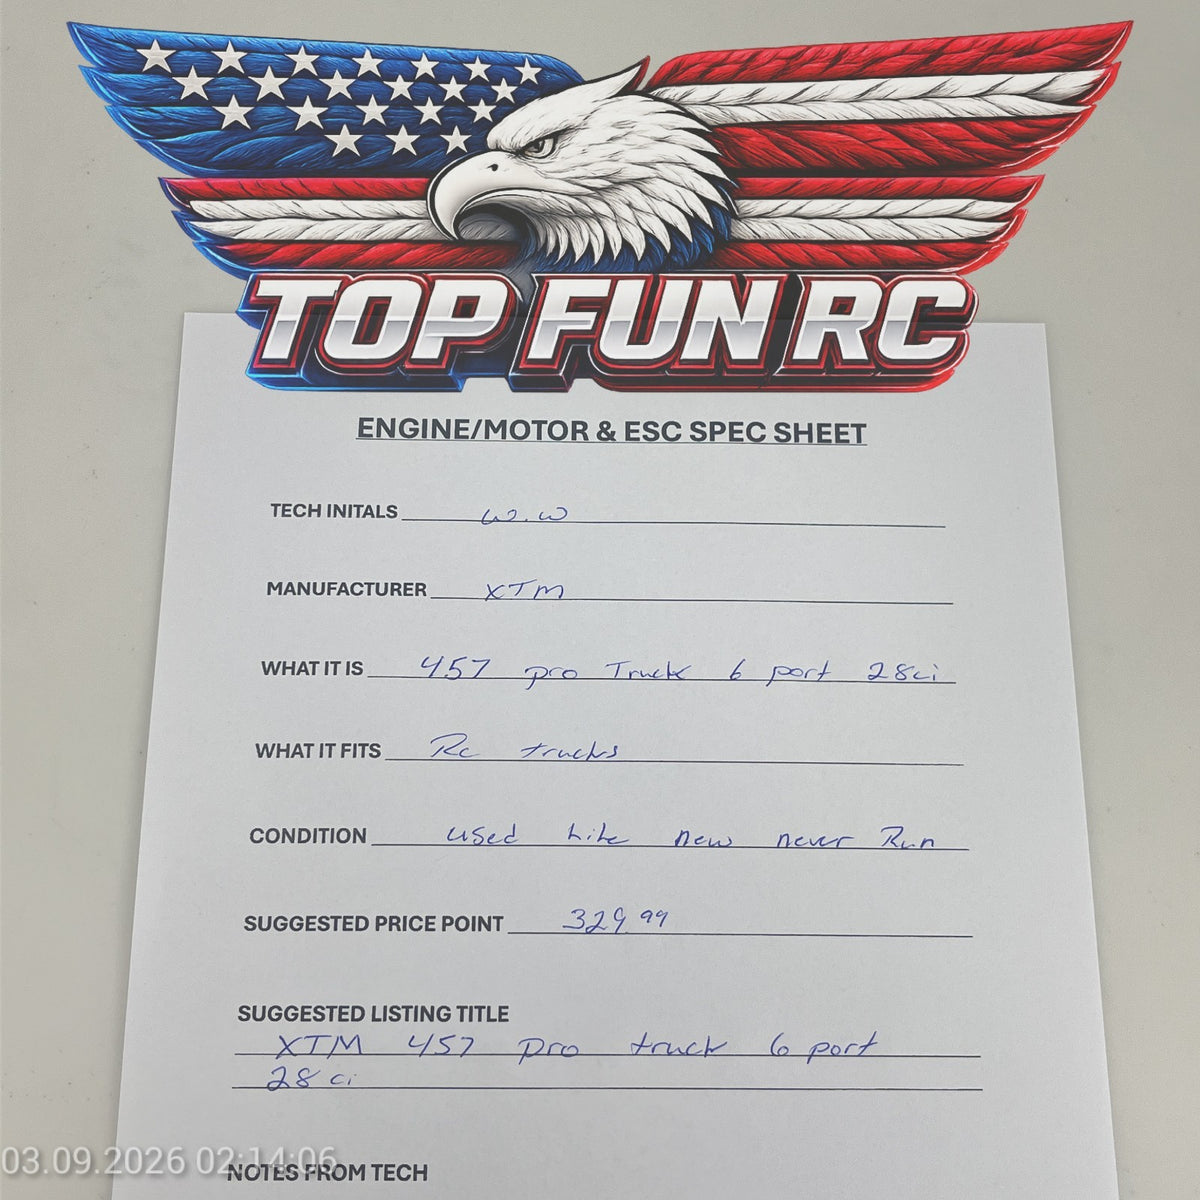 TOP FUN RC
ENGINE/MOTOR & ESC SPEC SHEET
TECH INITALS W.W
MANUFACTURER XTM
WHAT IT IS 457 pro Truck 6 port 28ci
WHAT IT FITS Rc trucks
CONDITION used like new never Run
SUGGESTED PRICE POINT 329.99
SUGGESTED LISTING TITLE
XTM 457 pro truck 6 port
28 ci
03.09.2026 02:14:06
NOTES FROM TECH